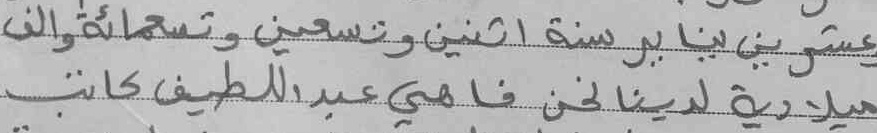 عشرين يناير سنة اثنين وتسعين وتسعمائة والف
ميلادية لدينا نحن فاهمي عبد اللطيف كاتب